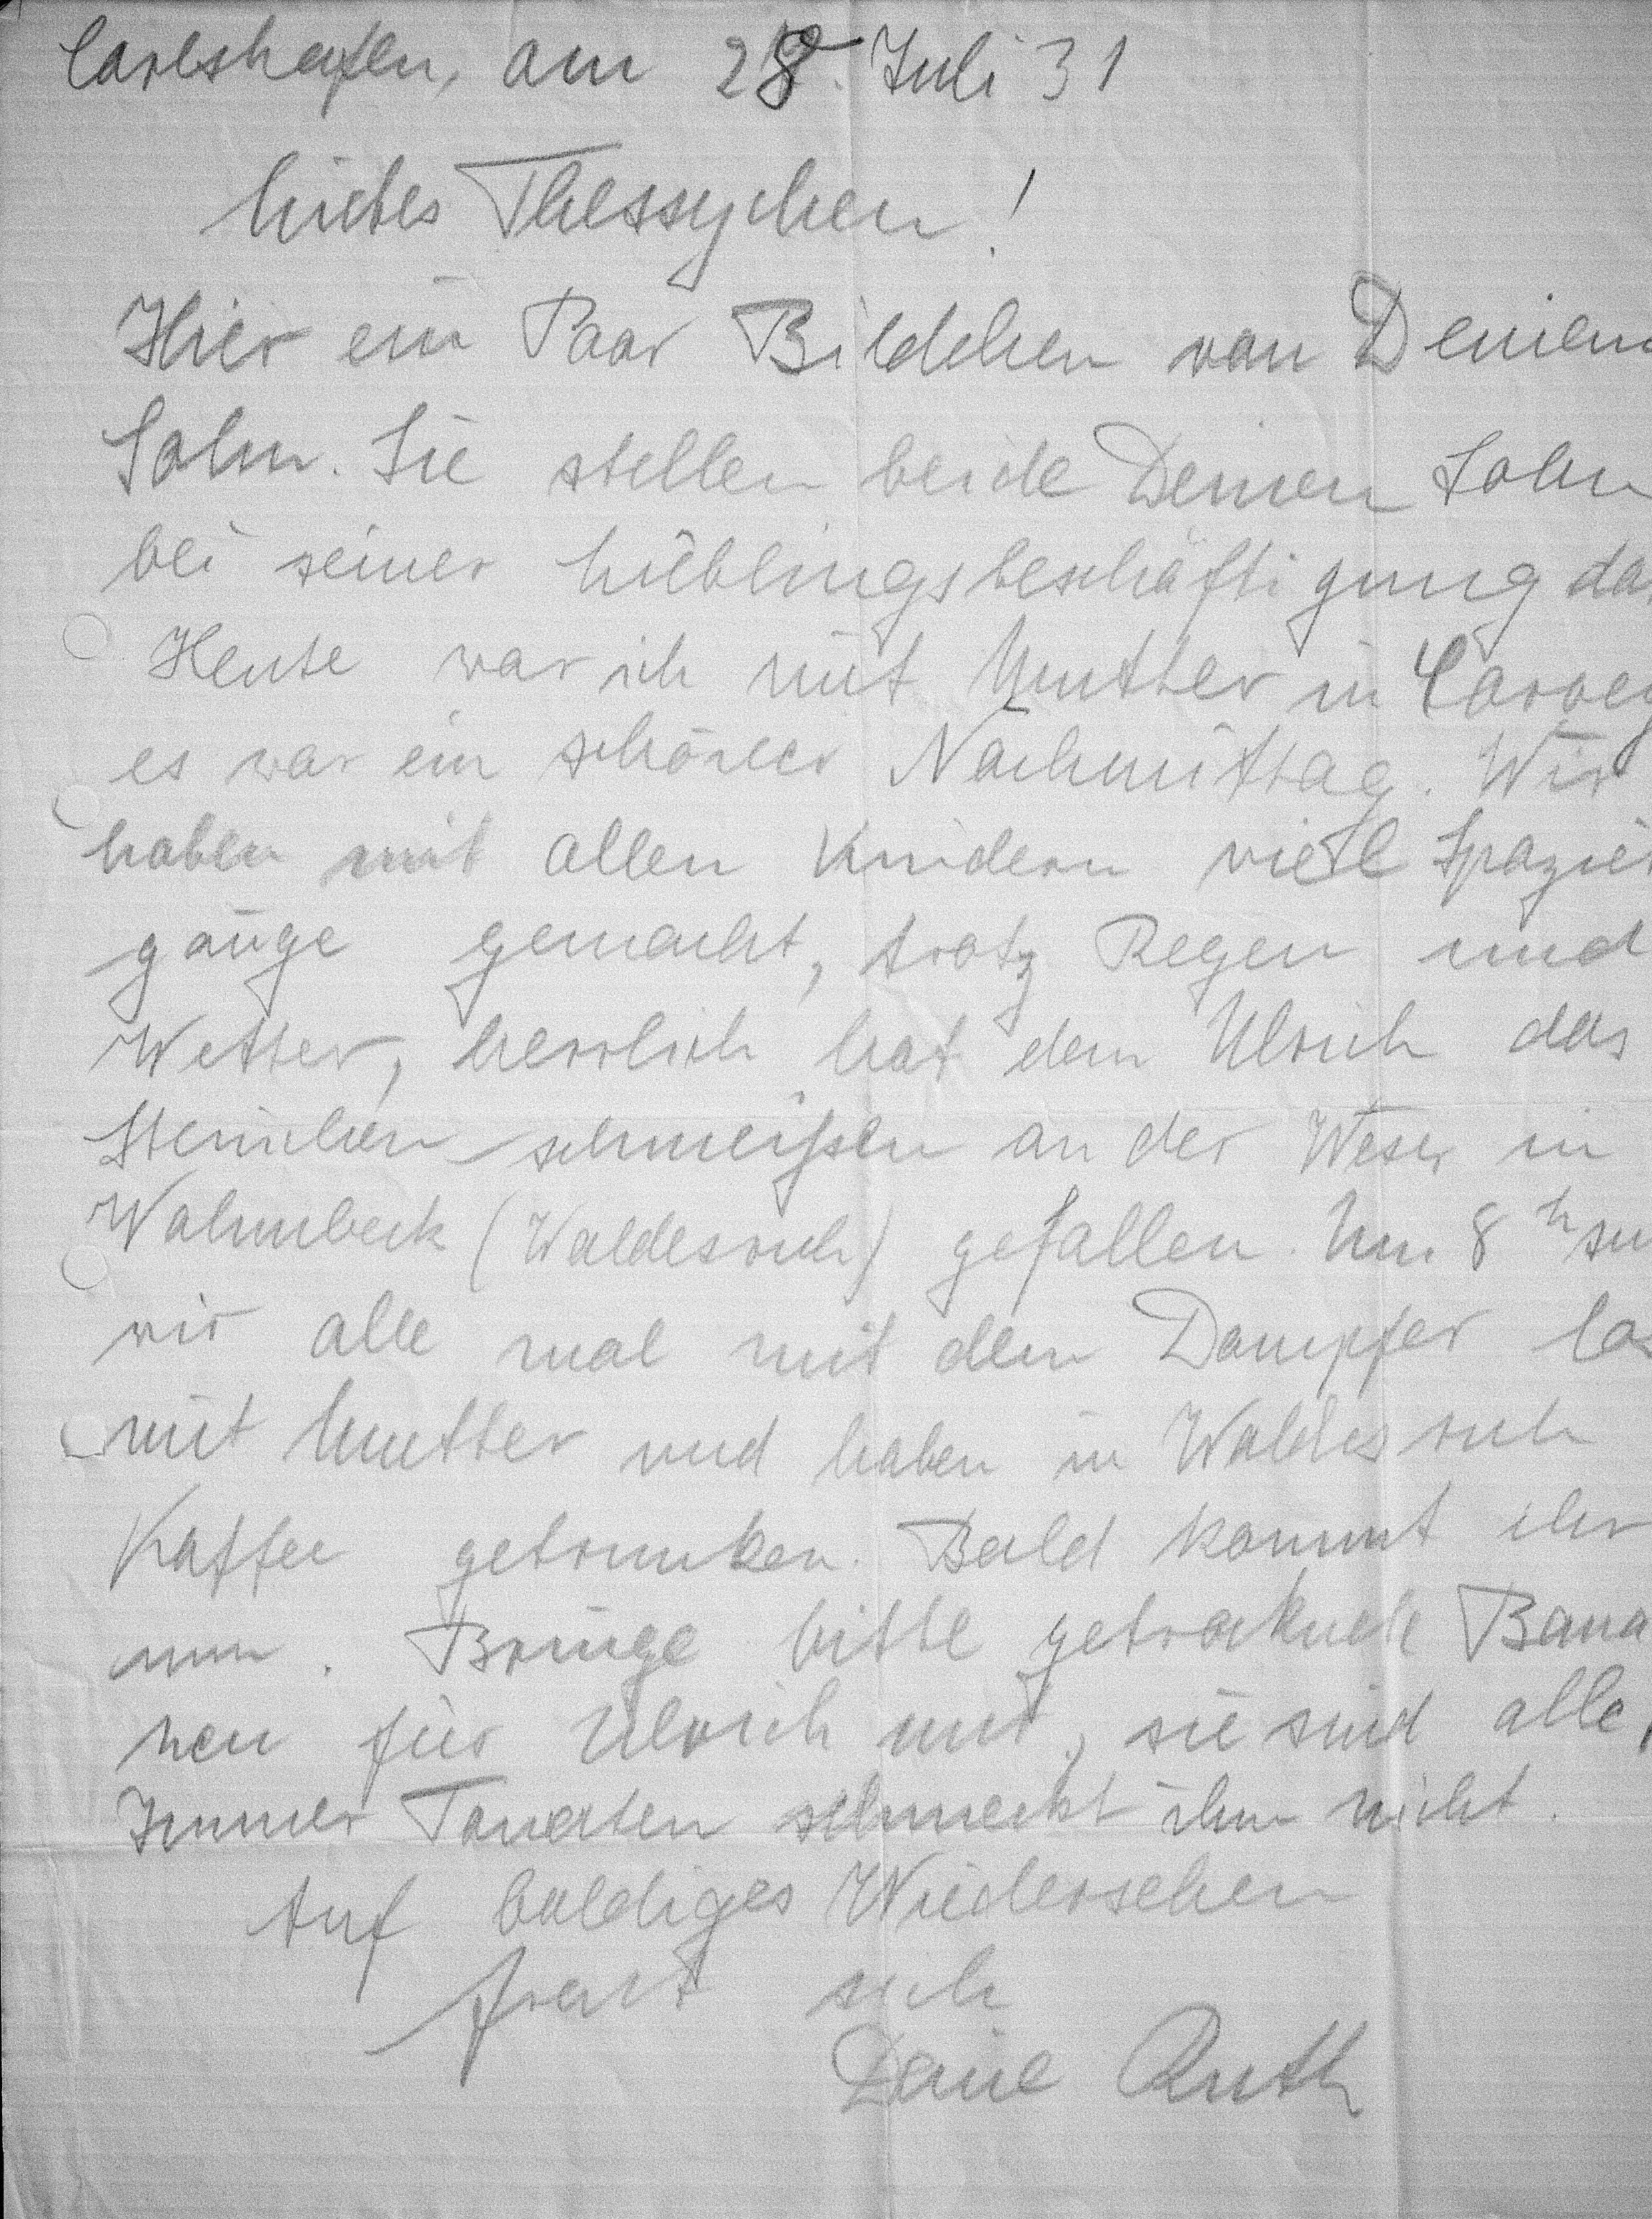 Carlshafen, am 28. Juli 31
Liebes Thessychen!
Hier ein Paar Bildchen von Deinem
Sohn. Sie stellen beide Deinen Sohn
bei seiner Lieblingsbeschäftigung da.
Heute war ich mit Mutter in Corvey
es war ein schöner Nachmittag. Wir
haben mit allen Kindern viele Spazier
gänge gemacht, trotz Regen und
Wetter, herrlich hat dem Ulrich das
Steinchen schmeißen an der Weser in
Wahmbeck (Waldesruh) gefallen. Um 8 h
wir alle mal mit dem Dampfer los
mit Mutter und haben in Waldesruh
Kaffee getrunken. Bald kommt ihr
nun. Bringe bitte getrocknete Bana
nen für Ulrich mit, sie sind alle,
Immer Tomaten schmeckt ihm nicht.
Auf baldiges Wiedersehen
freut sich
Deine Ruth